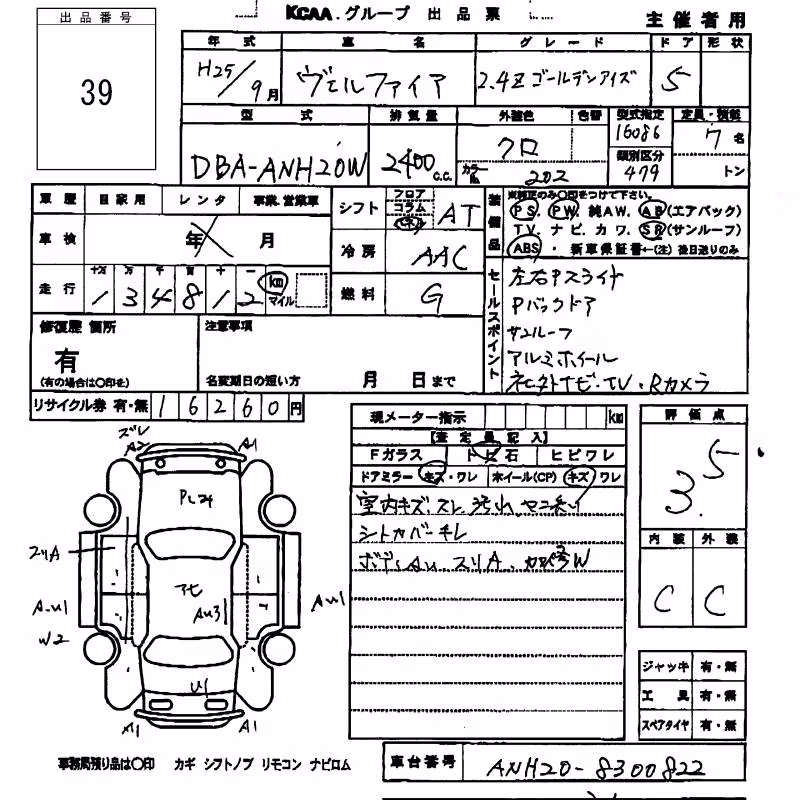 出品番号
39
KCAA.グループ 出品票
主催者用
年式 車名 グレード ドア 形状
H25/9月 ヴェルファイア 2.4Z ゴールデンアイズ 5
型式 排気量 外装色 色替 型式指定 定員・積載
DBA-ANH20W 2400 c.c. クロ カラーNo. 202 16086 7名
類別区分 479 トン
車歴 自家用 レンタ 事業.営業車
シフト フロア コラム パネル AT
装備品 ※純正のみ○印をつけて下さい。
PS. PW. 純AW. AB(エアバック)
TV. ナビ. カワ. SR(サンルーフ)
ABS・新車保証書←(注)後日送りのみ
車検 年 月
冷房 AAC
走行 十万 万 千 百 十 一 km マイル
134812
燃料 G
セールスポイント
左右Pスライド
Pバックドア
サンルーフ
アルミホイール
社外ナビ・TV・Rカメラ
修復歴 箇所
有
(有の場合は○印を)
注意事項
名変期日の短い方 月 日まで
リサイクル券 有・無 16260円
現メーター指示 km
【査定員記入】
Fガラス トビ石 ヒビワレ
ドアミラー キズ・ワレ ホイール(CP) キズ ワレ
室内キズ.スレ.汚れ.
シートカバー キレ
評価点
3.5
内装 外装
C C
ズレ
A2 A1
スリA
A1 A1
W2
AU3
U1
ジャッキ 有・無
工具 有・無
スペアタイヤ 有・無
事務局預り品は○印 カギ シフトノブ リモコン ナビロム
車台番号 ANH20-8300822